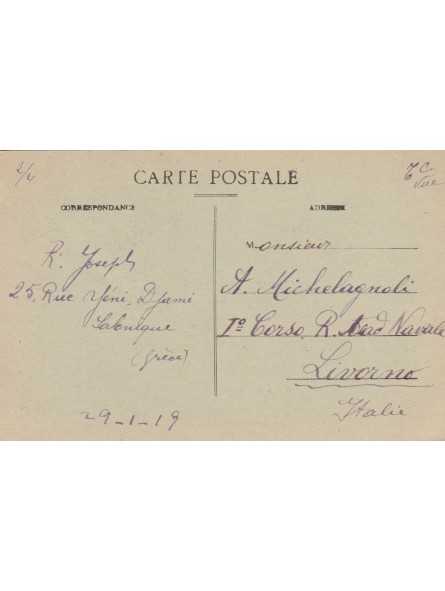 2/4
T C
Vue
CARTE POSTALE
CORRESPONDANCE
ADRESSE
R. Joseph
25, Rue Yéni Djami
Salonique
(Grèce)
29-1-19
Monsieur
A. Michelagnoli
Iº Corso R. Acad Navale
Livorno
Italie